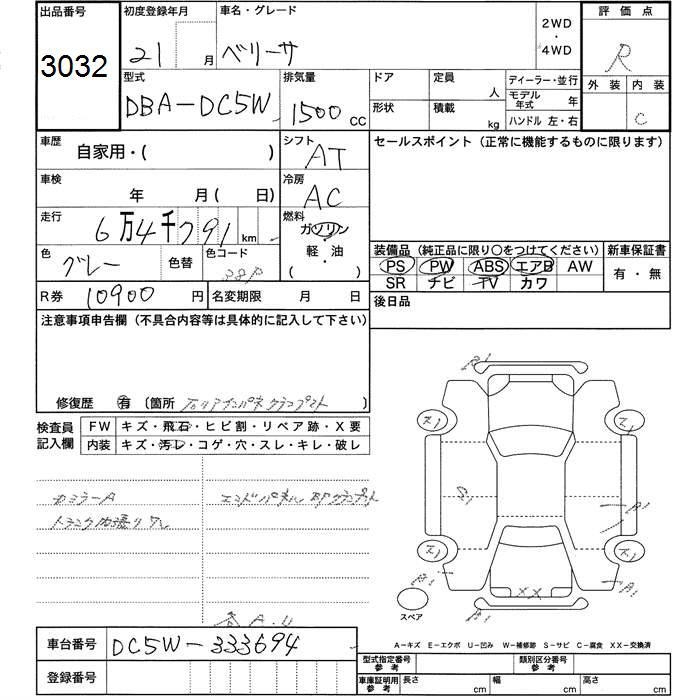 出品番号 初度登録年月 車名・グレード 2WD・4WD 評価点
3032 21 月 ベリーサ R
型式 排気量 ドア 定員 人 ディーラー・並行 外装 内装
DBA-DC5W 1500 cc 形状 積載 kg モデル年式 年 C
ハンドル 左・右
車歴 自家用・( ) シフト AT セールスポイント (正常に機能するものに限ります)
車検 年 月( 日) 冷房 AC
走行 6万4千791 km 燃料 ガソリン・軽油 ( )
色 グレー 色替 色コード 38P
装備品 (純正品に限り○をつけてください) 新車保証書
PS PW ABS エアB AW 有・無
SR ナビ TV カワ
R券 10900 円 名変期限 月 日 後日品
注意事項申告欄 (不具合内容等は具体的に記入して下さい)
修復歴 有 〔箇所 〕
検査員記入欄 FW キズ・飛石・ヒビ割・リペア跡・X要
内装 キズ・汚レ・コゲ・穴・スレ・キレ・破レ
ミラーA エンドパネル
トランク内張りワレ
A1
A1
A1
XX
スペア
A-キズ E-エクボ U-凹み W-補修跡 S-サビ C-腐食 XX-交換済
車台番号 DC5W-333694
登録番号
型式指定番号 参考 類別区分番号 参考
車庫証明用 参考 長さ cm 幅 cm 高さ cm